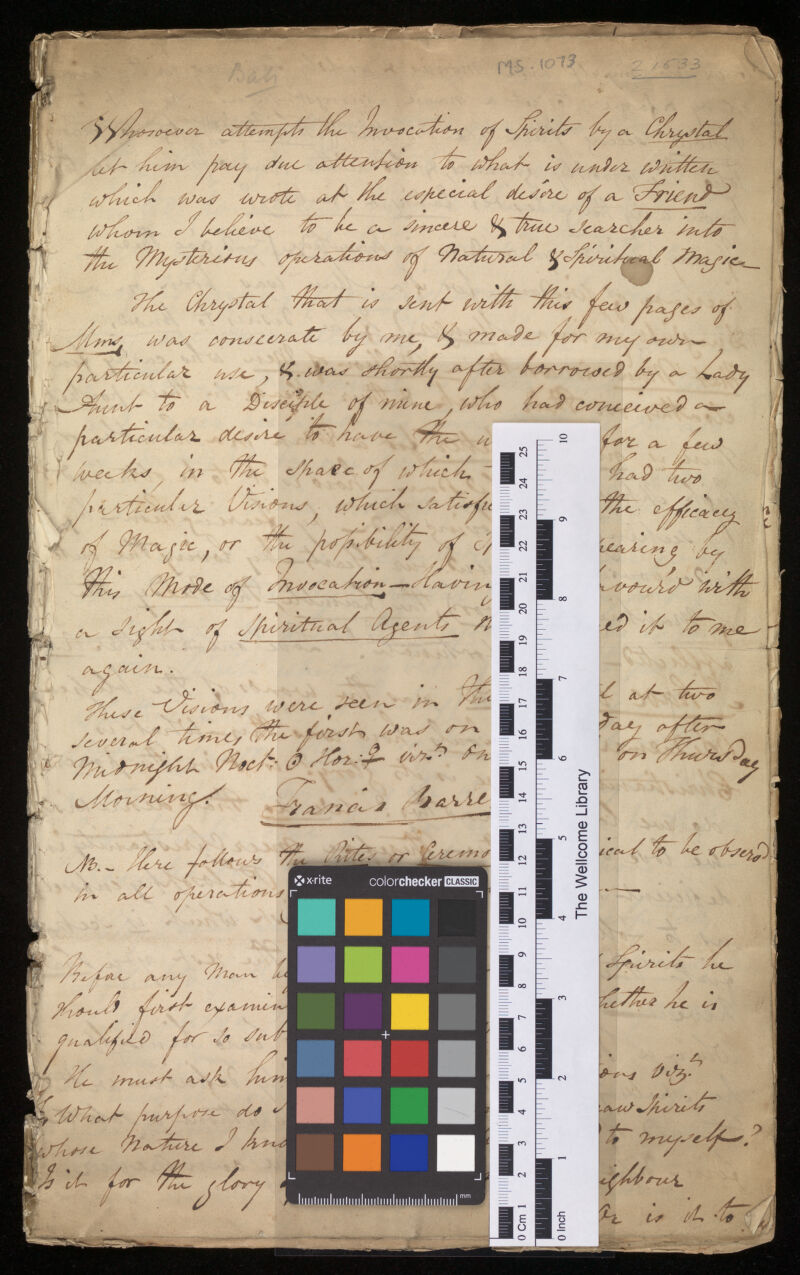 Bali
MS. 1073
21533
Whosoever attempts the Invocation of Spirits by a Chrystal
let him pay due attention to what is under written
which was wrote at the especial desire of a Friend
whom I believe to be a sincere & true searcher into
the Mysterious operations of Natural & Spiritual Magic
The Chrystal that is sent with this few pages of
Mms, was consecrate by me, & made for my own
particular use, & was shortly after borrowed by a Lady
Aunt to a Disciple of mine, who had conceived a
particular desire to have the for a few
weeks, in the space of which had two
particular Visions, which satisfi the efficacy
of Magic, or the possibility of earing by
this Mode of Invocation — Havin vour'd with
a sight of Spiritual Agents ed it to me
again.
These Visions were seen in the l at two
several times the first was on day after
Midnight Noct: ☉ Hor: ♀ viz.t on on Thursday
Morning. Francis Barre
NB. – Here follows the Rites or Ceremo ical to be observd
in all operations
Before any Man b Spirits he
should first examin hether he is
qualified for so sub
He must ask him ons viz.t
What purpose do I aw Spirits
whose Nature I kno to myself?
Is it for the glory ighbour
Or is it to
x-rite colorchecker CLASSIC
mm
The Wellcome Library
0 Cm 1 2 3 4 5 6 7 8 9 10 11 12 13 14 15 16 17 18 19 20 21 22 23 24 25
0 Inch 1 2 3 4 5 6 7 8 9 10